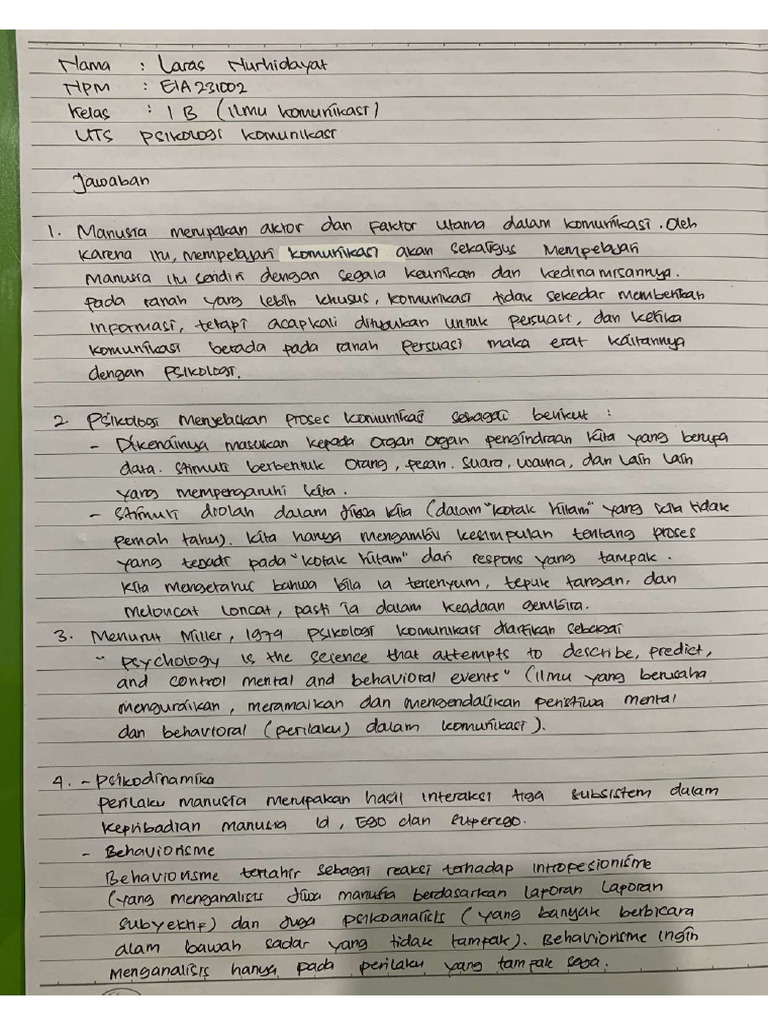 Nama : Laras Nurhidayat
NPM : E1A231002
Kelas : 1 B (Ilmu Komunikasi)
UTS Psikologi Komunikasi
Jawaban
1. Manusia merupakan aktor dan Faktor Utama dalam komunikasi. Oleh
karena itu, mempelajari komunikasi akan sekaligus Mempelajari
Manusia itu sendiri dengan segala keunikan dan kedinamisannya.
Pada ranah yang lebih khusus, komunikasi tidak sekedar memberikan
Informasi, tetapi acapkali ditujukan untuk persuasi, dan ketika
komunikasi berada pada ranah Persuasi maka erat kaitannya
dengan Psikologi.
2. Psikologi Menjelaskan Proses komunikasi sebagai berikut :
- Dikenainya masukan kepada Organ Organ pengindraan kita yang berupa
data. Stimuli berbentuk Orang, pesan. Suara, warna, dan Lain Lain
yang mempengaruhi kita.
- Stimuli diolah dalam Jiwa kita (dalam "kotak hitam" yang kita tidak
pernah tahu). Kita hanya mengambil kesimpulan tentang proses
yang terjadi pada "kotak hitam" dari respons yang tampak.
Kita Mengetahui bahwa bila Ia tersenyum, tepuk tangan, dan
meloncat loncat, pasti Ia dalam keadaan gembira.
3. Menurut Miller, 1979 Psikologi komunikasi diartikan sebagai
" psychology is the science that attempts to describe, predict,
and control mental and behavioral events" (ilmu yang berusaha
mengurdikan, meramalkan dan mengendalikan peristiwa mental
dan behavioral (perilaku) dalam komunikasi).
4. - Psikodinamika
Perilaku manusia merupakan hasil interaksi tiga subsistem dalam
kepribadian manusia Id, Ego dan Superego.
- Behaviorisme
Behaviorisme terlahir sebagai reaksi terhadap intropesionisme
(yang menganalisis Jiwa manusia berdasarkan laporan laporan
subyektif) dan Juga Psikoanalisis (yang banyak berbicara
alam bawah sadar yang tidak tampak). Behaviorisme ingin
menganalisis hanya pada perilaku yang tampak saja.